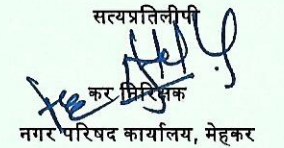 सत्यप्रतिलीपी
कर निरिक्षक
नगर परिषद कार्यालय, मेहकर